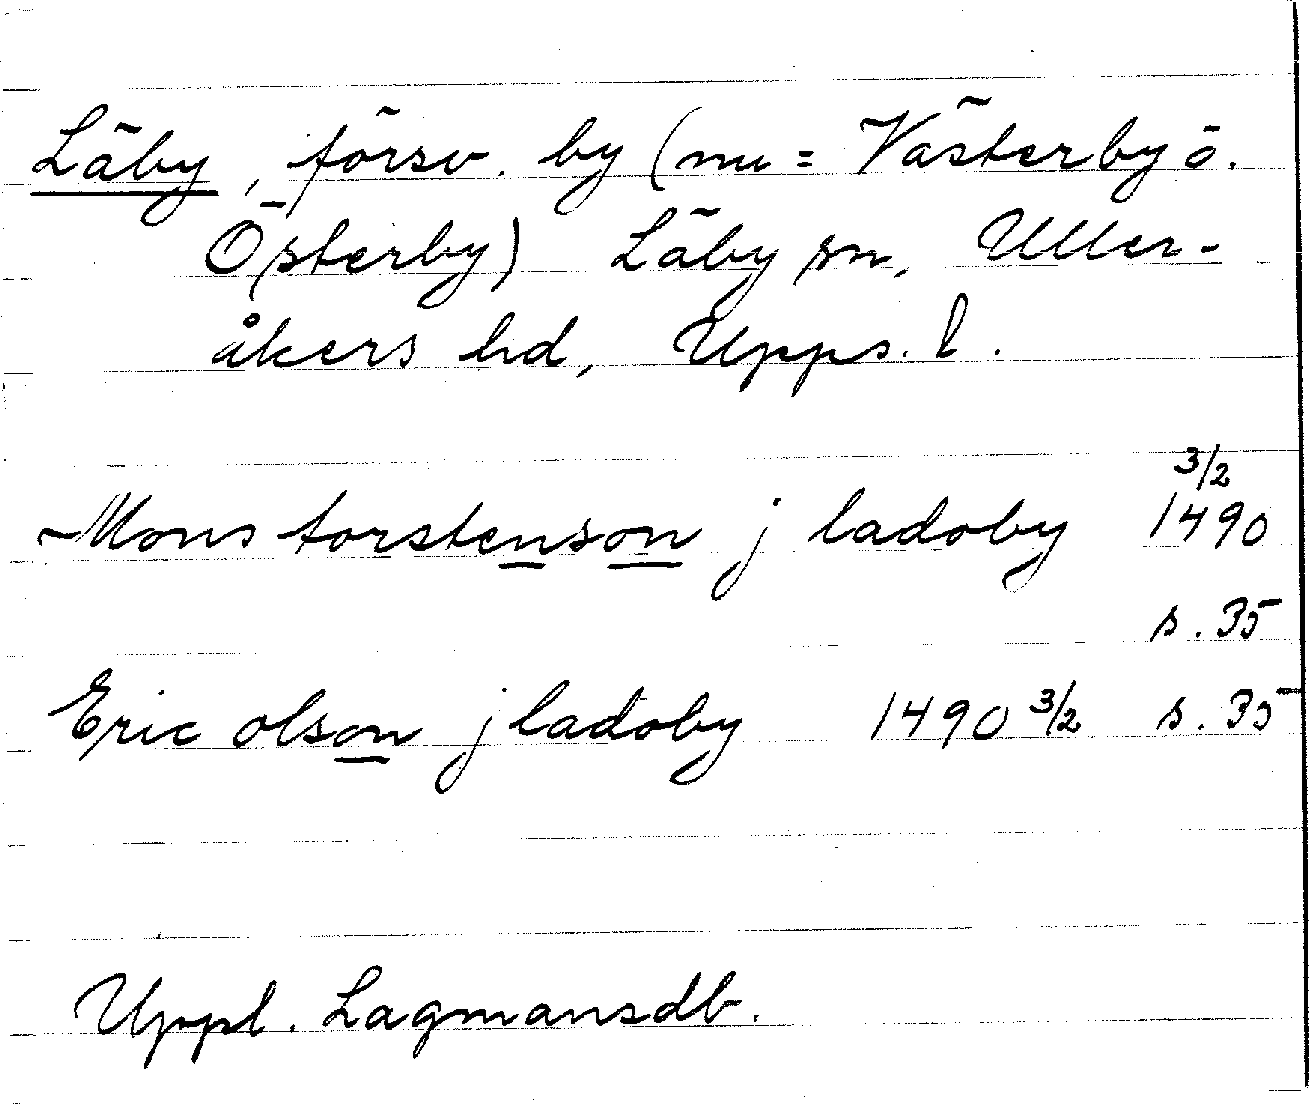 Läby, försv. by (nu = Västerby o.
Österby) Läby sn, Uller-
åkers hd, Upps. l.
3/2
Mons torstenson j ladoby 1490
s. 35
Eric olson j ladoby 1490 3/2 s. 35
Uppl. Lagmansdb.